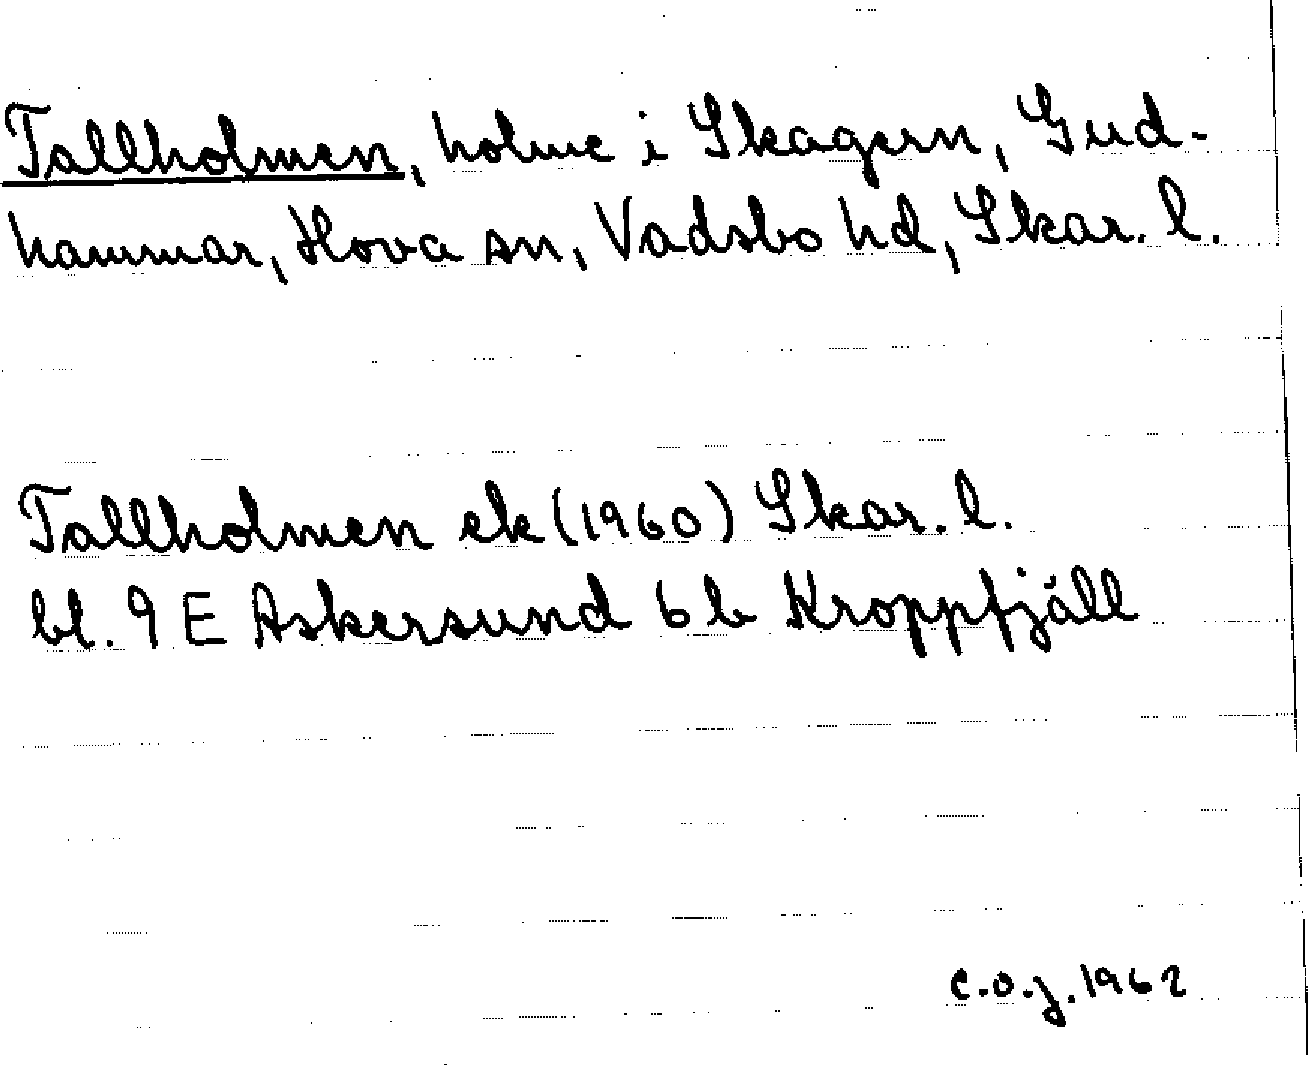 Tallholmen, holme i Skagern, Gud-
hammar, Hova sn, Vadsbo hd, Skar. l.
Tallholmen ek (1960) Skar. l.
bl. 9 E Askersund 6 b Kroppfjäll
C.O.J. 1962